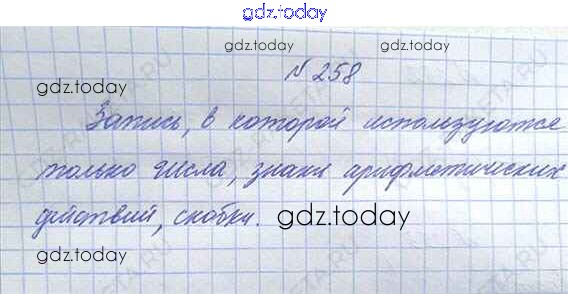 gdz.today
gdz.today gdz.today
№ 258
gdz.today
Запись, в которой используются
только числа, знаки арифметических
действий, скобки. gdz.today
gdz.today